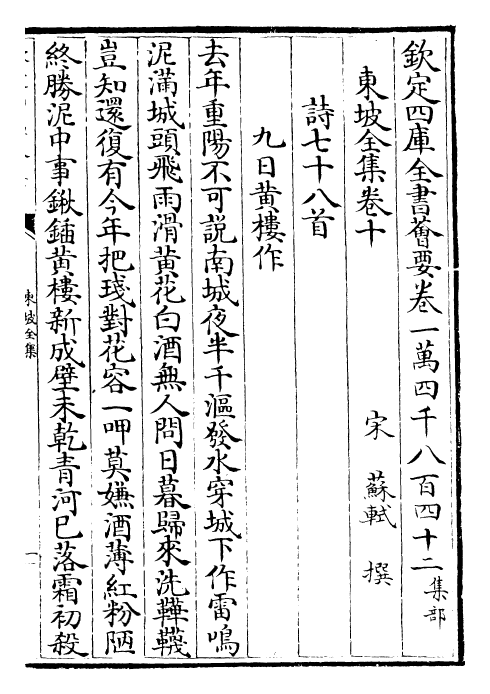 欽定四庫全書薈要卷一萬四千八百四十二集部
東坡全集卷十
宋 蘇軾 撰
詩七十八首
九日黄樓作
去年重陽不可説南城夜半千漚發水穿城下作雷鳴
泥滿城頭飛雨滑黄花白酒無人問日暮歸來洗鞾韈
豈知還復有今年把琖對花容一呷莫嫌酒薄紅粉陋
終勝泥中事鍬鍤黄樓新成壁未乾青河已落霜初殺
東坡全集